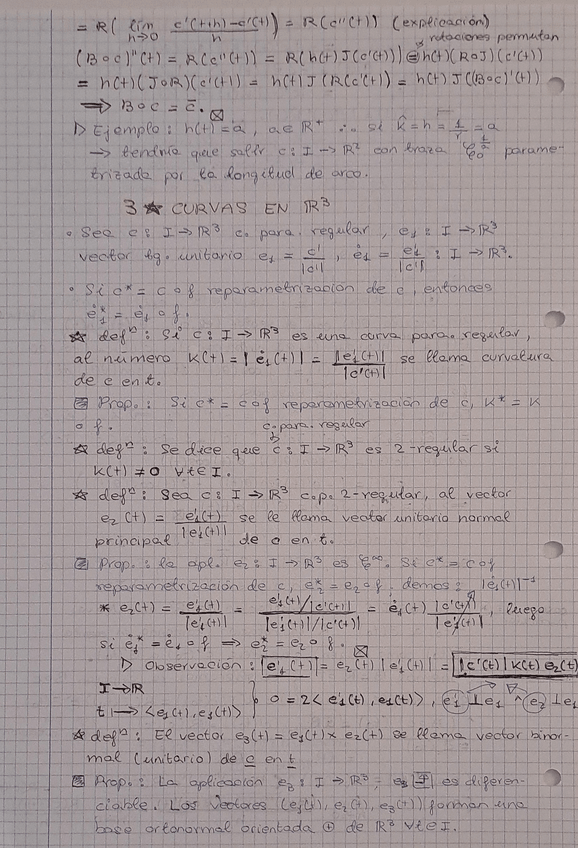 = R( lim h→0 (c'(t+h) - c'(t))/h ) = R(c''(t)) (explicación)
rotaciones permutan
(B∘c)''(t) = R(c''(t)) = R(h(t) J(c'(t))) = h(t)(R∘J)(c'(t))
= h(t)(J∘R)(c'(t)) = h(t) J(R(c'(t)) = h(t) J((B∘c)'(t))
⟹ B∘c = c̄. ⊠
▷ Ejemplo: h(t) = a, a∈ℝ⁺ ∴ si k̂ = h = 1/r = a
→ tendría que salir c: I→ℝ² con traza parame-
trizada por la longitud de arco.
3 ★ CURVAS EN ℝ³
• Sea c: I→ℝ³ c. para. regular, e₁: I→ℝ³
vector tg. unitario e₁ = c'/|c'|, ė₁ = e₁'/|c'| : I→ℝ³.
• Si c* = c∘f reparametrización de c, entonces
ė₁* = ė₁∘f.
★ defⁿ: Si c: I→ℝ³ es una curva para. regular,
al número K(t) = |ė₁(t)| = |e₁'(t)|/|c'(t)| se llama curvatura
de c en t.
Prop.: Si c* = c∘f reparametrización de c, K* = K
∘f.
c. para. regular
★ defⁿ: Se dice que c: I→ℝ³ es 2-regular si
K(t) ≠ 0 ∀t∈I.
★ defⁿ: Sea c: I→ℝ³ c.p. 2-regular, al vector
e₂(t) = e₁'(t)/|e₁'(t)| se le llama vector unitario normal
principal de c en t.
Prop.: la apl. e₂: I→ℝ³ es 𝒞^∞. Si c* = c∘f
reparametrización de c, e₂* = e₂∘f. demos: |ė₁(t)|⁻¹
* e₂(t) = e₁'(t)/|e₁'(t)| = (e₁'(t)/|c'(t)|)/(|e₁'(t)|/|c'(t)|) = ė₁(t) |c'(t)|/|e₁'(t)|, luego
si ė₁* = ė₁∘f ⟹ e₂* = e₂∘f. ⊠
▷ Observación: e₁'(t) = e₂(t) |e₁'(t)| = |c'(t)| K(t) e₂(t)
I→ℝ
t ↦ <e₁(t), e₁(t)> } 0 = 2<e₁'(t), e₁(t)>, e₁' ⊥ e₁ ∧ e₂ ⊥ e₁
★ defⁿ: El vector e₃(t) = e₁(t) × e₂(t) se llama vector binor-
mal (unitario) de c en t
Prop.: La aplicación e₃: I→ℝ³ es diferen-
ciable. Los vectores (e₁(t), e₂(t), e₃(t)) forman una
base ortonormal orientada ⊕ de ℝ³ ∀t∈I.